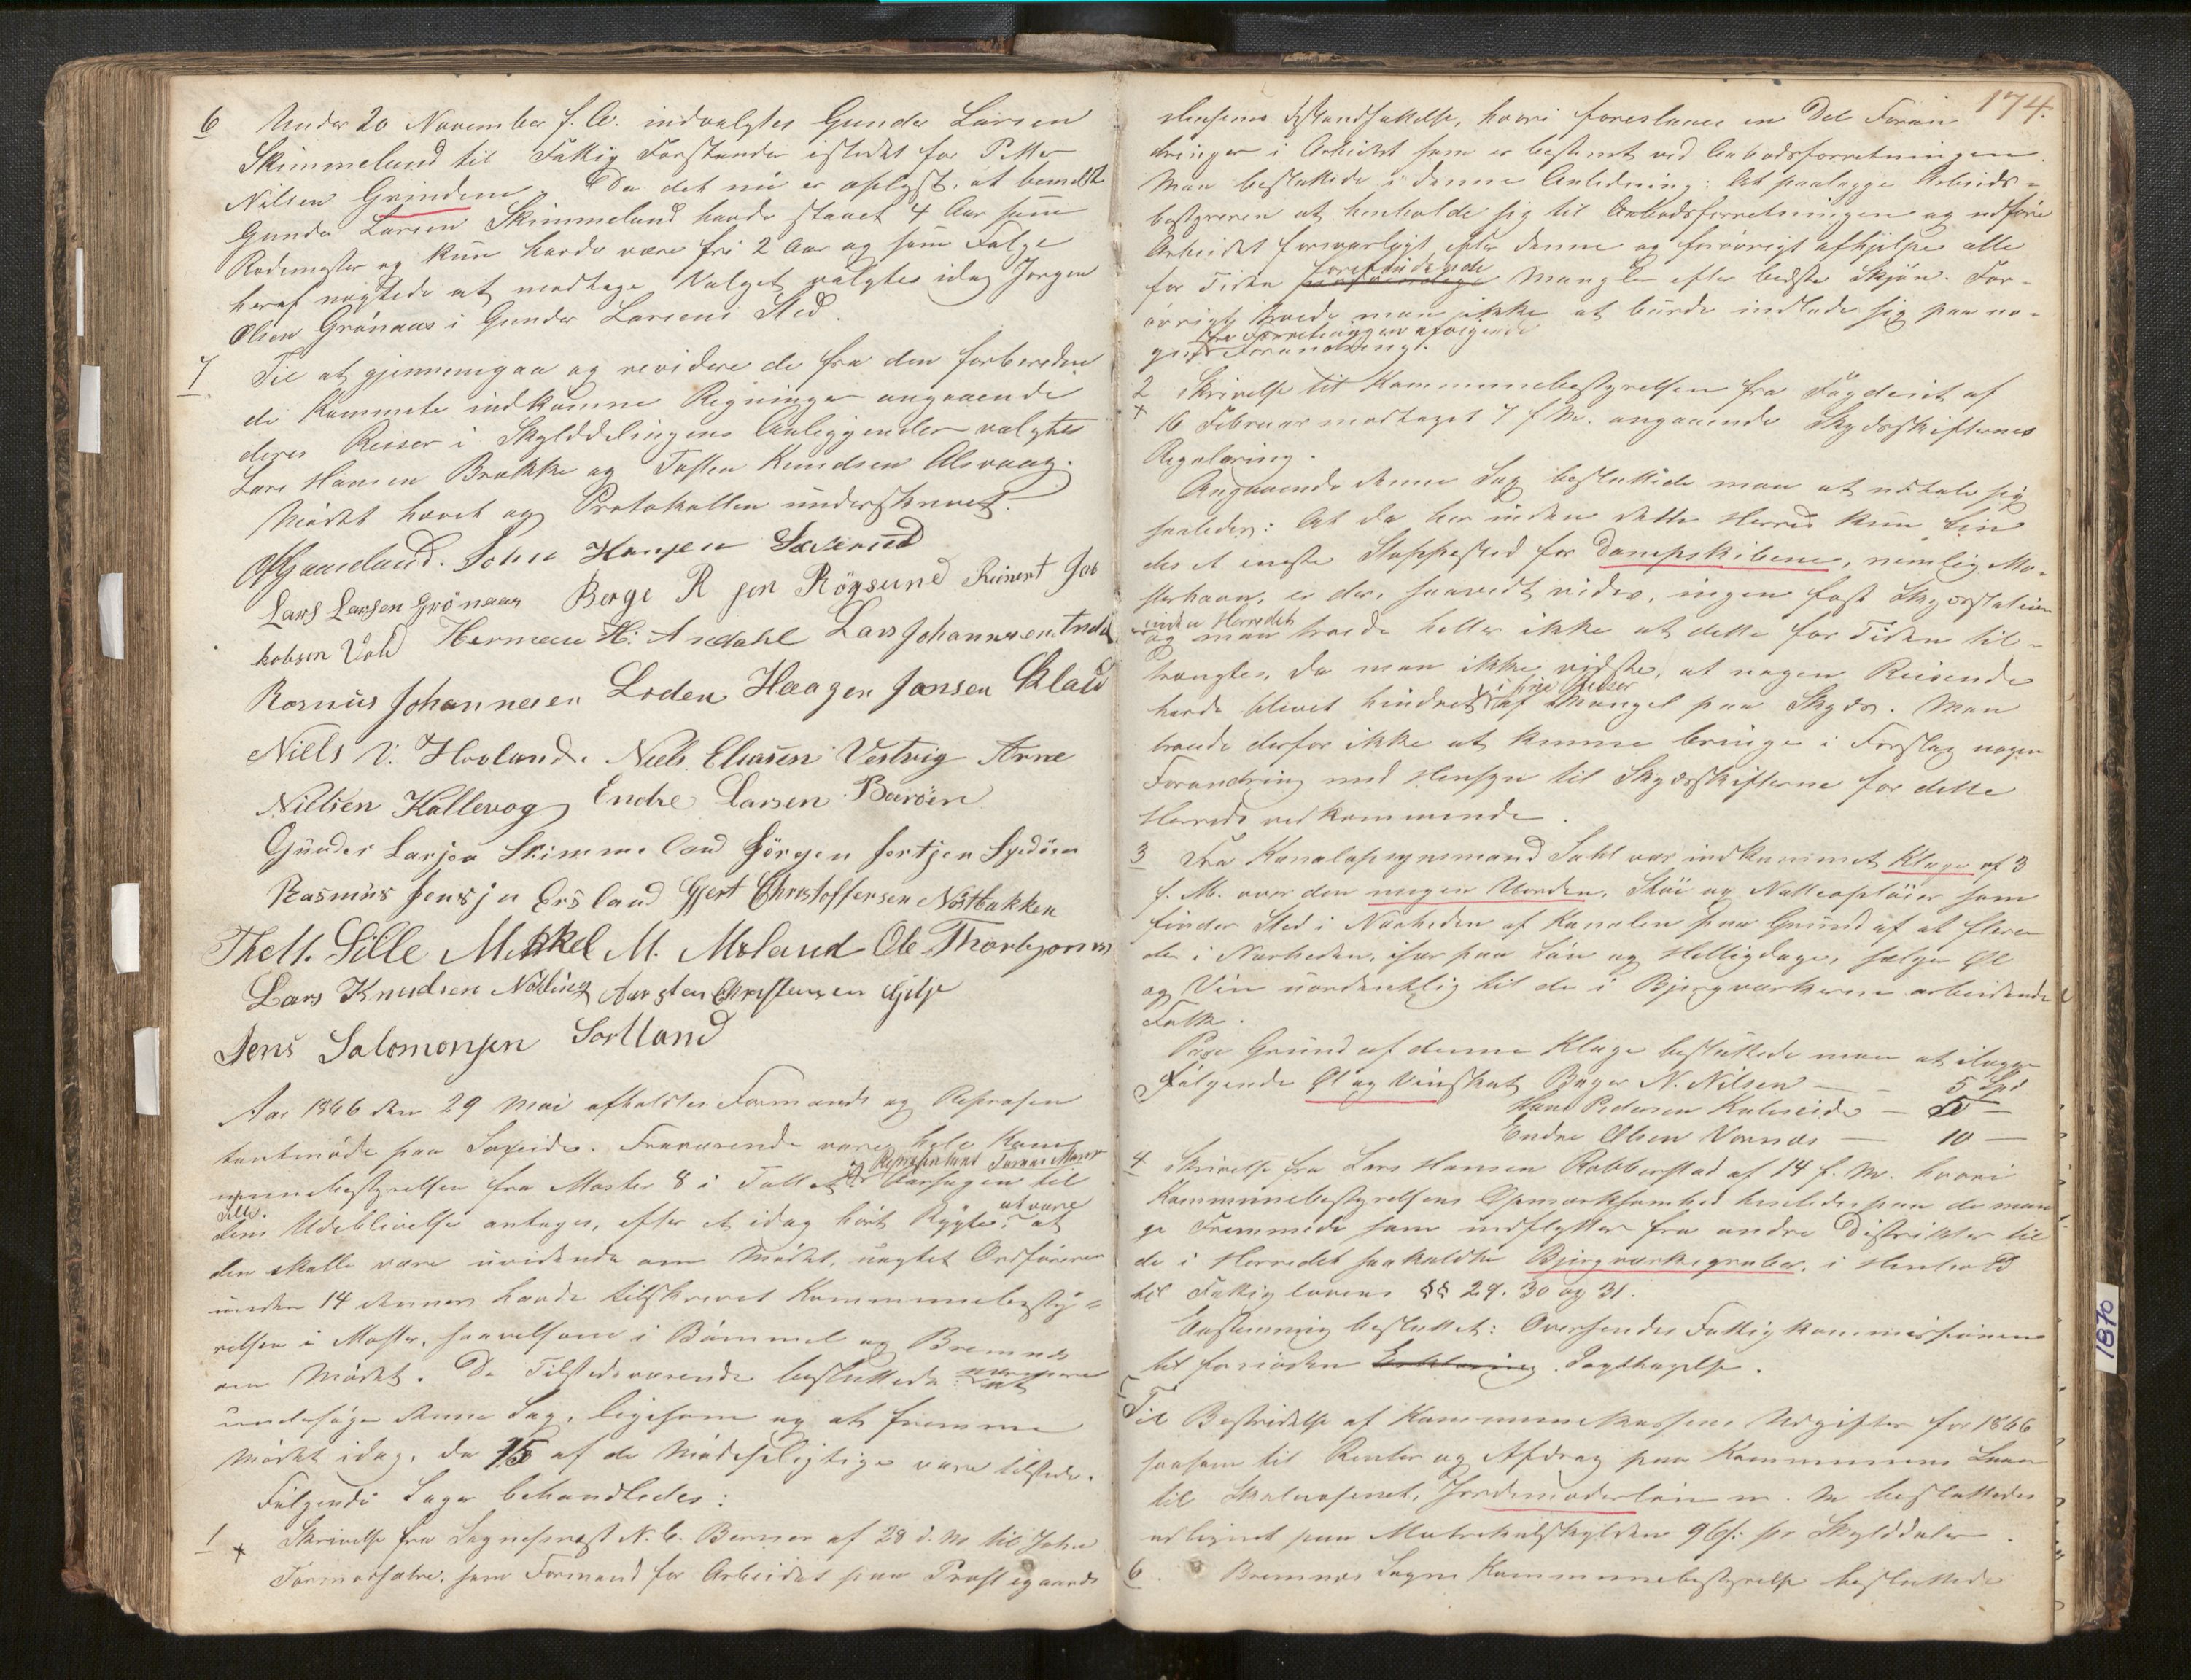 6 Under 20 November f. A. indvalgtes Gunder Larsen
Skimmeland til Fattig Forstander istedet for Petter
Nilsen Grindene. Da det nu er oplyst, at bemeldte
Gunder Larsen Skimmeland havde staaet 4 Aar som
Rodemester og kun havde være fri 2 Aar og som Følge
heraf nægtede at modtage Valget valgtes idag Jørgen
Olsen Grönaas i Gunder Larsens Sted.
7 Til at gjennemgaa og revidere de fra den forbereden
de Kommite indkomne Regninger angaaende
deres Reiser i Skylddelingens Anliggender valgtes
Lars Hansen Brakke og Tosten Knudsen Alsvaag.
Mödet hævet og Protokollen underskrevet.
John Hansen Sæverud
Lars Larsen Grönaas Berge R sen Rögsund Reinert Jac
kobsen Vold Herman H. Andahl Lars Johannesen
Rasmus Johannesen Loden Haagen Jansen
Niels N. Hovland. Niels Eliasen Vestvig Arne
Nilsen Kallevog Endre Larsen Baröen
Gunder Larsen Skimmeland Jörgen
Rasmus Jensen Ersland Gjert Christoffersen Nöstbakken
Sille Mikkel M. Moland Ole Thorbjörnsen
Lars Knudsen Nödling
Jens Salomonsen Sortland
Aar 1866 den 29 Mai afholdtes Formands og Repræsen
tantmöde paa Saxeide. Fraværende vare hele Kom
munebestyrelsen fra Moster 8 i Tallet og Repræsentant Aarsagen til
Udeblivelse antages, efter et idag hört Rygte, at være at
den skulle være uvidende om Mödet, uagtet Ordföreren
under 14 dennes havde tilskrevet Kommunebesty=
relsen i Moster, saavelsom i Bömmel og Bremnes
om Mödet. De Tilstedeværende besluttede at
undersöge denne Sag, ligesom og at fremme
Mödet idag, da 15 af de Mödepligtige vare tilstede.
Fölgende Sager behandledes:
1 Skrivelse fra Sogneprest N. C. Berner af 28 d. M. til John
som Formand for Arbeidet paa Præstegaards
174.
Istandsættelse, hvori foreslaaes en Del Foran
dringer i Arbeidet som er bestemt ved Anbudsforretningen.
Man besluttede i denne Anledning: At paalægge Arbeids=
bestyreren at henholde sig til Anbudsforretningen og udföre
Arbeidet forsvarligt efter denne og forövrigt afhjelpe alle
for Tiden forefindende Mangler efter bedste Skjön. For=
övrigt troede man ikke at burde indlade sig paa no=
gen fra Forretningen afvigende Forandring.
2 Skrivelse til Kommunebestyrelsen fra Fogderiet af
16 Februar modtaget 7 f. M. angaaende Skydsskifternes
Regulering.
Angaaende denne Sag besluttede man at udtale sig
saaledes: At da her inden dette Herred kun fin
des et eneste Stoppested for Dampskibene, nemlig Mo=
sterhavn, er der, saavidt vides, ingen fast Skydsstation
inden Herredet og man troede heller ikke at dette for Tiden til=
trængtes, da man ikke vidste, at nogen Reisende
havde blevet hindret i sine Reiser af Mangel paa Skyds. Man
troede derfor ikke at kunne bringe i Forslag nogen
Forandring med Hensyn til Skydsskifterne for dette
Herreds vedkommende.
3 Fra Kanalopsynsmand Dahl var indkommet Klage af 3
f. M. over den megen Uorden, Stöi og Natteoptöier som
finder Sted i Nærheden af Kanalen paa Grund af at flere
der i Nærheden, især paa Sön og Helligdage, sælger Öl
og Vin uordentlig til de i Bjergværkerne arbeidende
Folk.
Paa Grund af denne Klage besluttede man at ilægge
Fölgende Öl og Vinskat Bager N. Nilsen — 5 Spd
Hans Pedersen Kuleseide — 5 —
Endre Olsen Vornæs — 10 —
4 Skrivelse fra Lars Hansen Robberstad af 14 f. M. hvori
Kommunebestyrelsens Opmærksomhed henledes paa de man
ge Fremmede som indflytter fra andre Distrikter til
de i Herredet saakaldte Bjergværksgruber, i Henhold
til Fattiglovens §§ 29. 30 og 31.
Enstemmig besluttet: Oversendes Fattigkommissionen
til fornöden Erklæring Iagttagelse.
5 Til Bestridelse af Kommunekassens Udgifter for 1866
saasom til Renter og Afdrag paa Kommunens Laan
til Skolevæsenet, Jordemoderlön m. m. besluttedes
udlignet paa Matrikulskylden 96 s. pr Skylddaler.
6 Bremnes Sogns Kommunebestyrelse besluttede
1870